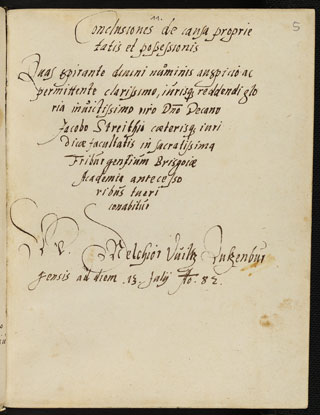 11.
5
Conclusiones de causa proprie
tatis et possessionis
Quas spirante divini numinis auspicio ac
permittente clarissimo, iurisq reddendi glo
ria invictissimo viro Dno Decano
Jacobo Streithio cæterisq iuri
dicæ facultatis in sacratissima
Friburgensium Brisgoiæ
Academia antecesso
ribus tueri
conabitur
Melchior
gensis ad diem 13. July Ao. 82.